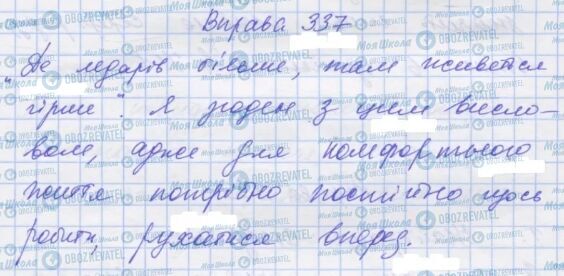 Вправа 337
"Де ледарів більше, там живеться
гірше". Я згоден з цим висло-
вом, адже для комфортного
життя потрібно постійно щось
робити, рухатися вперед.